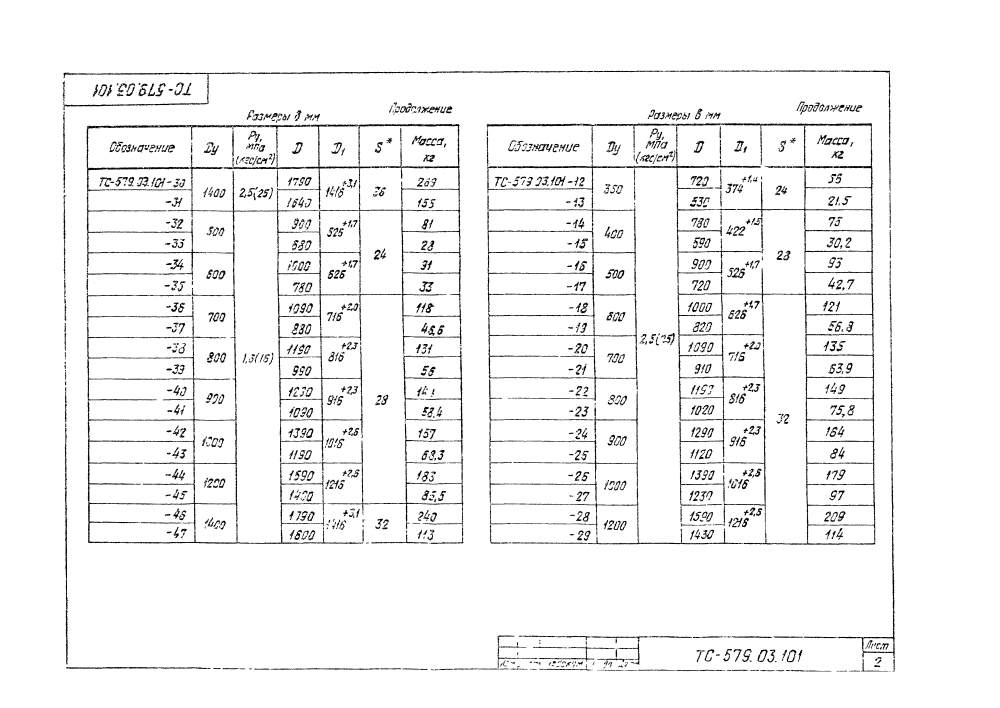 ТС-579.03.101
Размеры в мм Продолжение
Обозначение Dу Ру, мпа (кгс/см²) D D₁ S* Масса, кг
ТС-579.03.101-30 1400 2,5(25) 1790 1416+3,1 36 269
-31 1640 155
-32 500 1,6(16) 900 526+1,7 24 81
-33 680 28
-34 600 1000 626+1,7 91
-35 780 33
-36 700 1090 716+2,0 28 118
-37 880 46,6
-38 800 1190 816+2,3 131
-39 990 56
-40 900 916+2,3
-41 1090 58,4
-42 1000 1390 1016+2,6 157
-43 1190 63,3
-44 1200 1590 1216+2,6 183
-45 1400 85,5
-46 1400 1790 1416+3,1 32 240
-47 1600 113
Размеры в мм Продолжение
Обозначение Dу Ру, мпа (кгс/см²) D D₁ S* Масса, кг
ТС-579.03.101-12 350 2,5(25) 720 374+1,4 24 56
-13 530 21,5
-14 400 780 422+1,5 28 75
-15 590 30,2
-16 500 900 526+1,7 93
-17 720 42,7
-18 600 1000 626+1,7 32 121
-19 820 56,8
-20 700 1090 716+2,0 135
-21 910 63,9
-22 800 1190 816+2,3 149
-23 1020 75,8
-24 900 1290 916+2,3 164
-25 1120 84
-26 1000 1390 1016+2,6 179
-27 1230 97
-28 1200 1590 1216+2,6 209
-29 1430 114
ТС-579.03.101
Лист
2